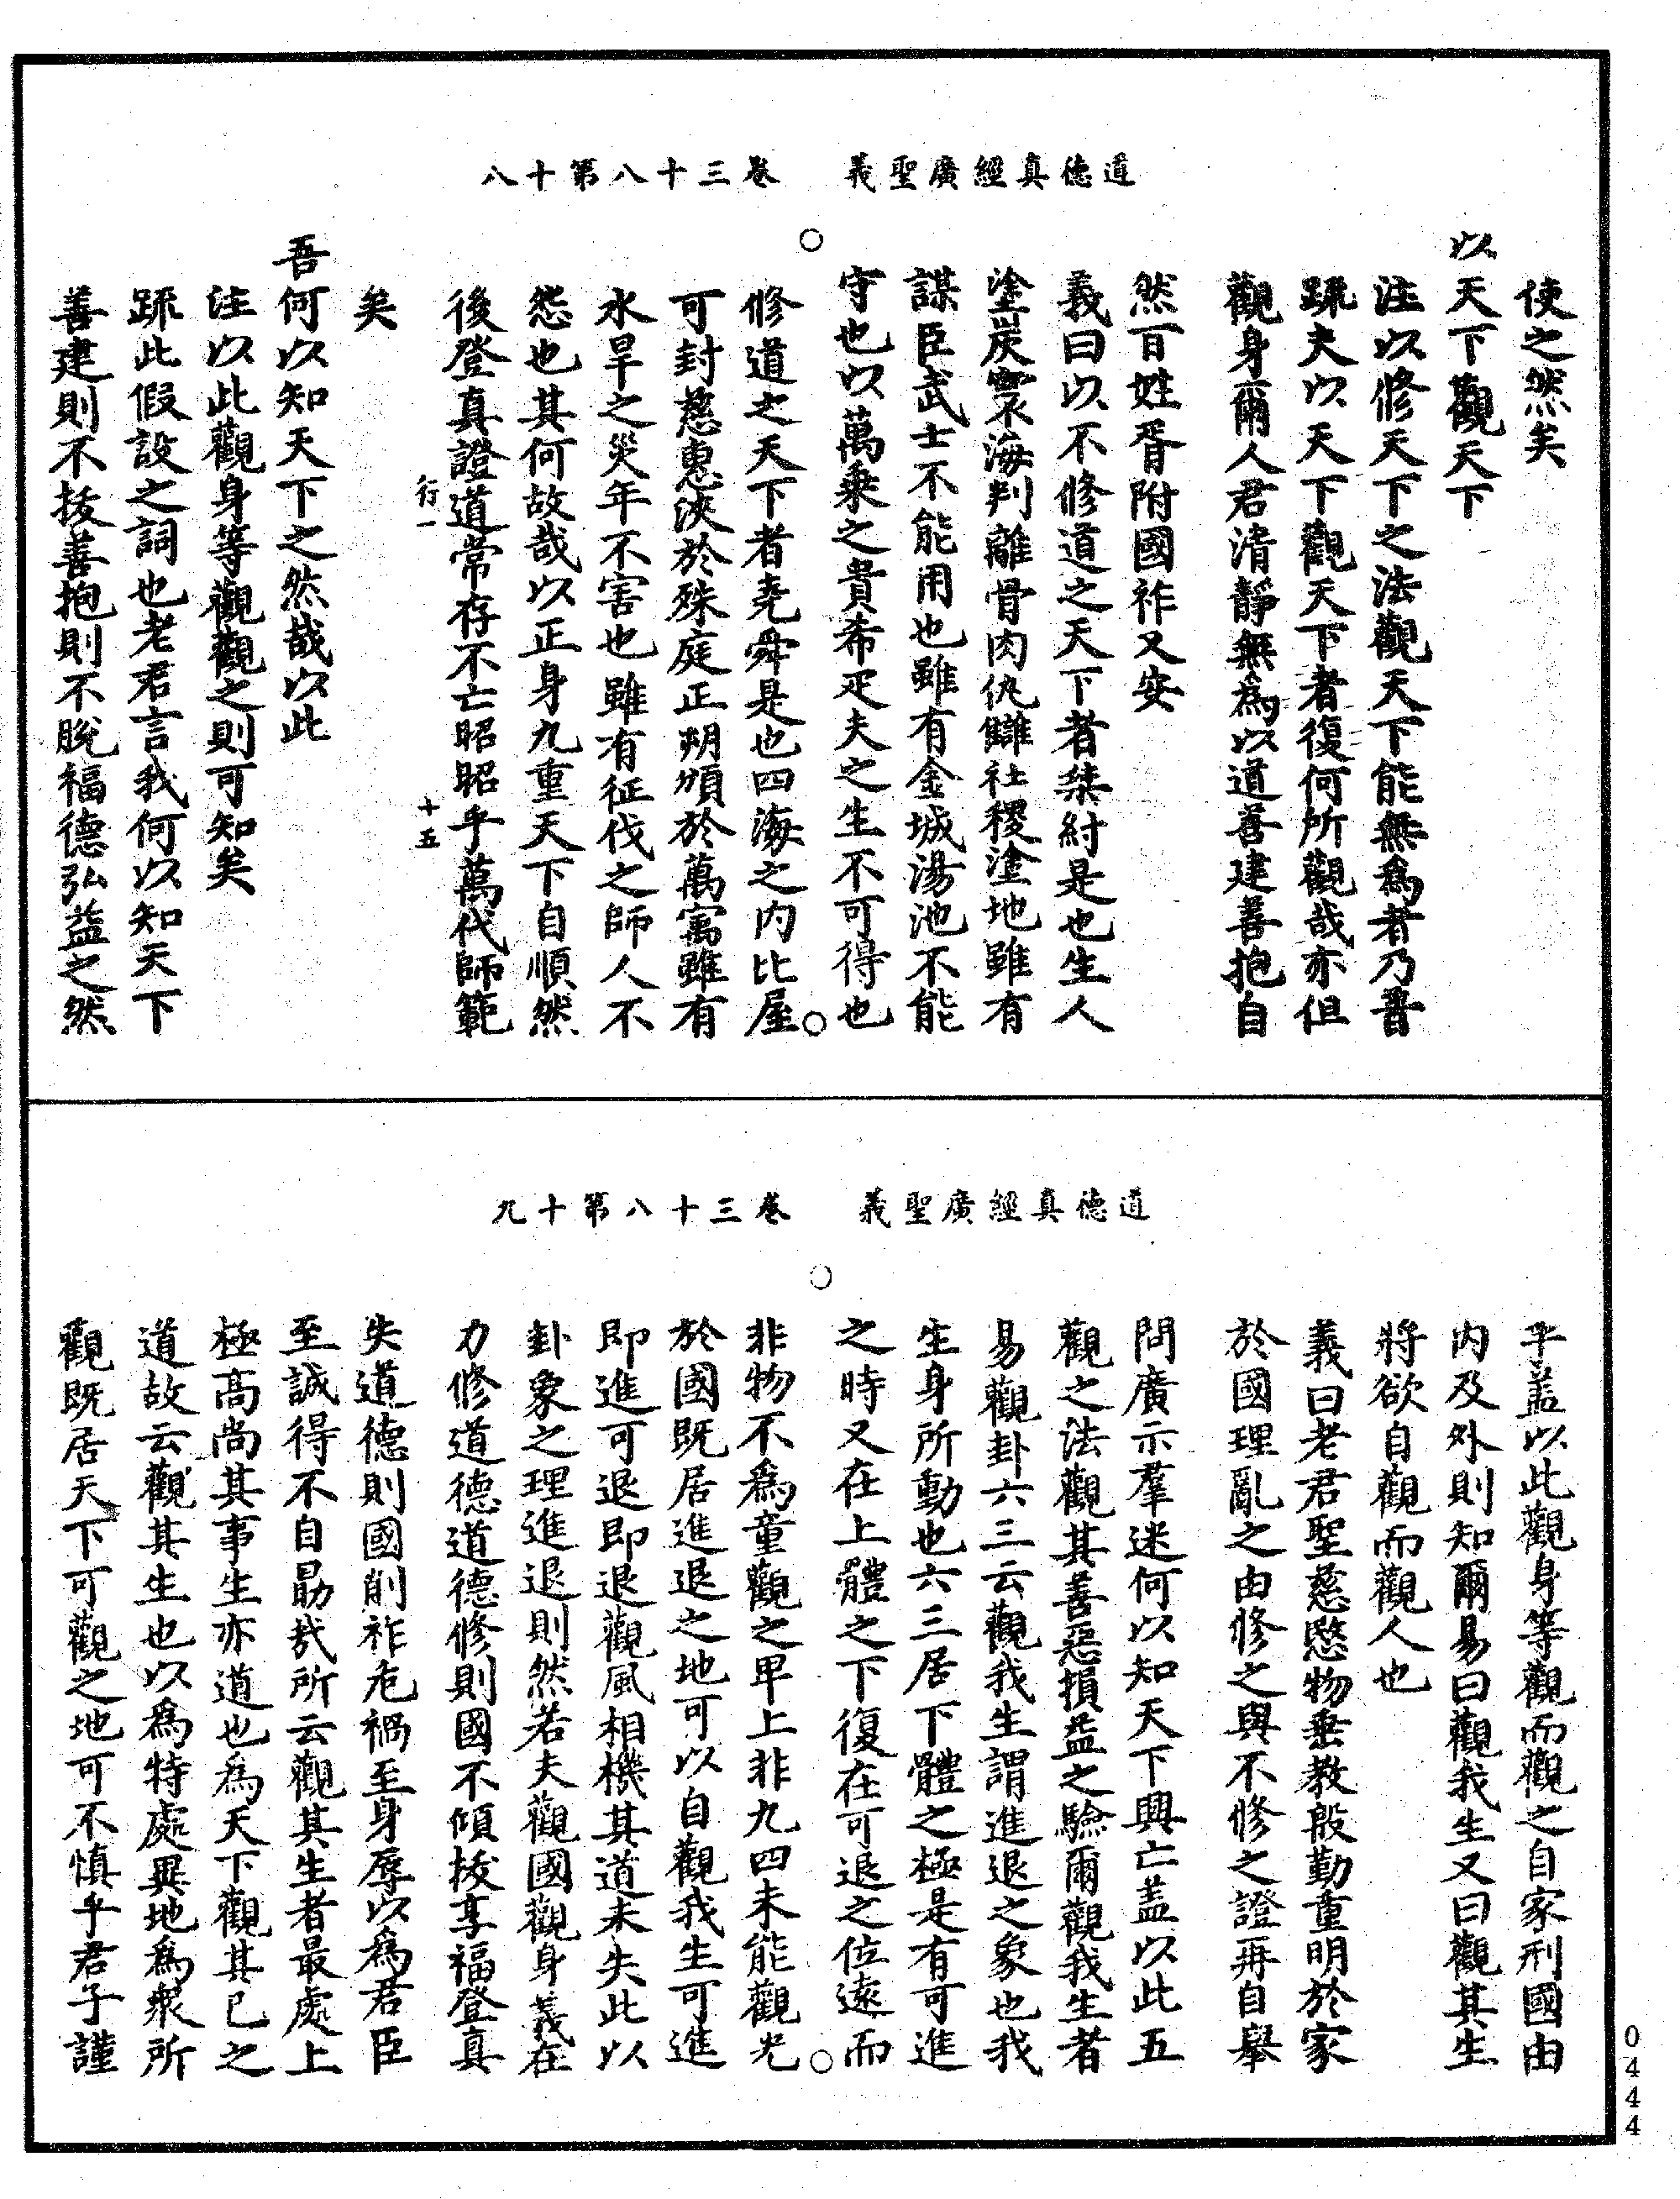 道德真經廣聖義　卷三十八第十八
使之然矣
以天下觀天下
注以修天下之法觀天下能無為者乃普
疏夫以天下觀天下者復何所觀哉亦但
觀身爾人君清靜無為以道善建善抱自
然百姓胥附國祚乂安
義曰以不修道之天下者桀紂是也生人
塗炭寰海判離骨肉仇讎社稷塗地雖有
謀臣武士不能用也雖有金城湯池不能
守也以萬乘之貴希疋夫之生不可得也
修道之天下者堯舜是也四海之內比屋
可封慈惠浹於殊庭正朔頒於萬寓雖有
水旱之災年不害也雖有征伐之師人不
怨也其何故哉以正身九重天下自順然
後登真證道常存不亡昭昭乎萬代師範
行一　十五
矣
吾何以知天下之然哉以此
注以此觀身等觀觀之則可知矣
疏此假設之詞也老君言我何以知天下
善建則不拔善抱則不脫福德弘益之然
道德真經廣聖義　卷三十八第十九
乎蓋以此觀身等觀而觀之自家刑國由
內及外則知爾易曰觀我生又曰觀其生
將欲自觀而觀人也
義曰老君聖慈愍物垂教殷勤重明於家
於國理亂之由修之與不修之證再自舉
問廣示羣迷何以知天下興亡盖以此五
觀之法觀其善惡損益之驗爾觀我生者
易觀卦六三云觀我生謂進退之象也我
生身所動也六三居下體之極是有可進
之時又在上體之下復在可退之位遠而
非物不為童觀之卑上非九四未能觀光
於國既居進退之地可以自觀我生可進
即進可退即退觀風相機其道未失此以
卦象之理進退則然若夫觀國觀身義在
力修道德道德修則國不傾拔享福登真
失道德則國削祚危禍至身辱以為君臣
至誠得不自勗哉所云觀其生者最處上
極高尚其事生亦道也為天下觀其己之
道故云觀其生也以為特處異地為衆所
觀既居天下可觀之地可不慎乎君子謹
0444